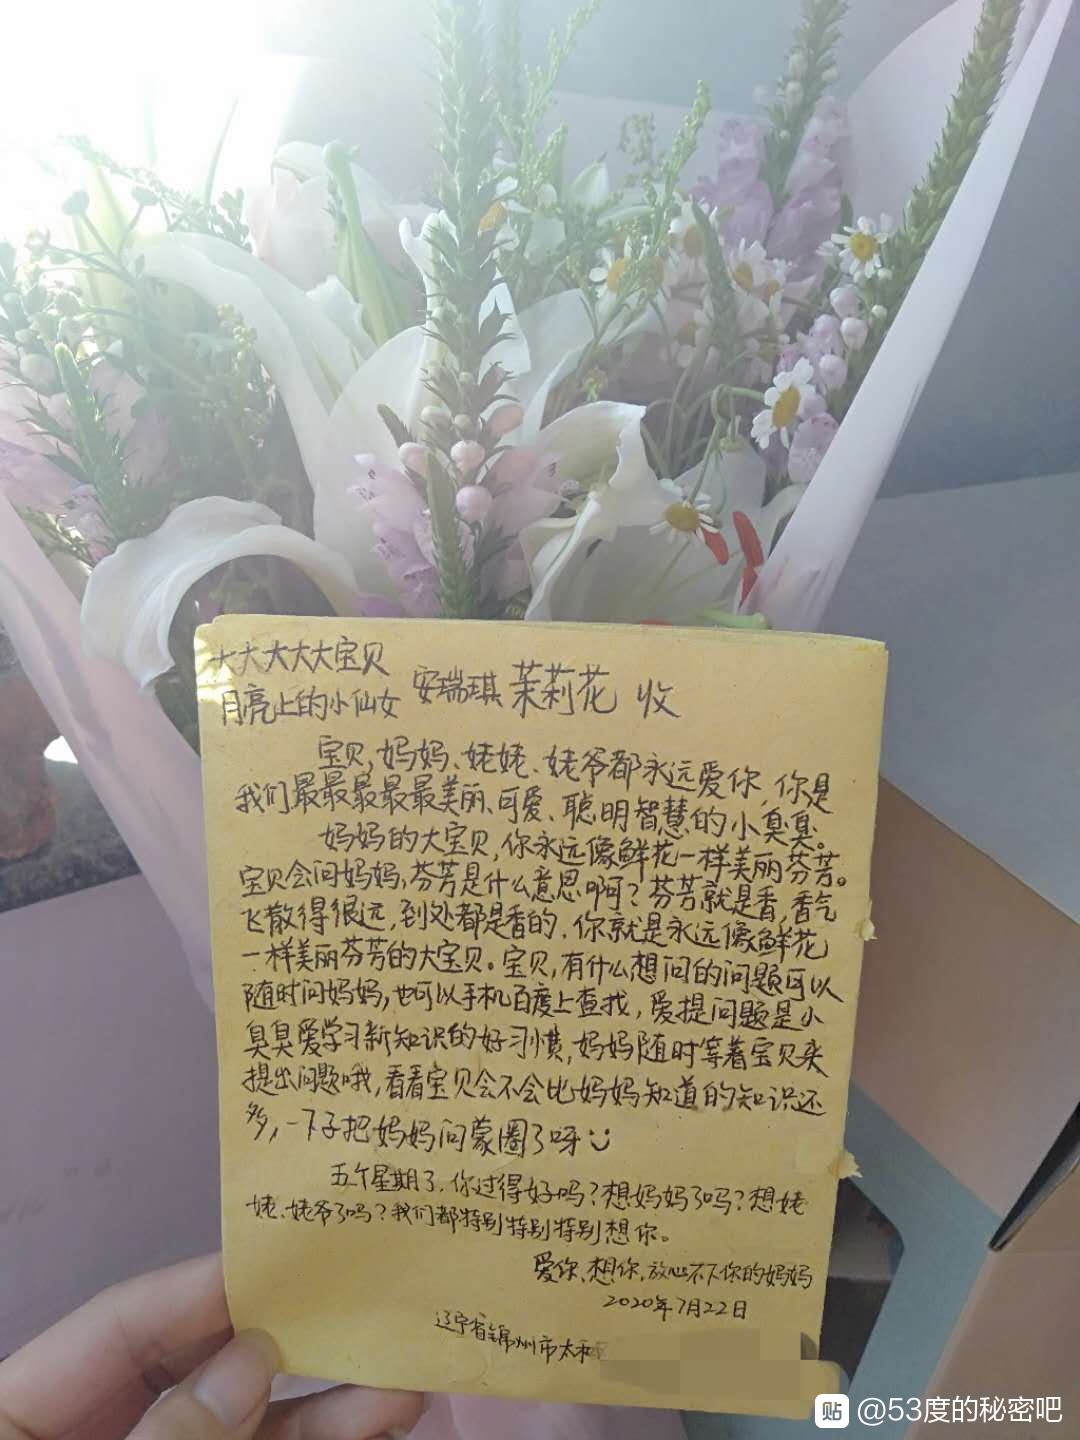 大大大大大宝贝
月亮上的小仙女 安瑞琪 茉莉花 收
宝贝,妈妈、姥姥、姥爷都永远爱你,你是
我们最最最最最美丽、可爱、聪明智慧的小臭臭。
妈妈的大宝贝,你永远像鲜花一样美丽芬芳。
宝贝会问妈妈,芬芳是什么意思啊?芬芳就是香,香气
飞散得很远,到处都是香的,你就是永远像鲜花
一样美丽芬芳的大宝贝。宝贝,有什么想问的问题可以
随时问妈妈,也可以手机百度上查找,爱提问题是小
臭臭爱学习新知识的好习惯,妈妈随时等着宝贝来
提出问题哦,看看宝贝会不会比妈妈知道的知识还
多,一下子把妈妈问蒙圈了呀
五个星期了,你过得好吗?想妈妈了吗?想姥
姥、姥爷了吗?我们都特别特别特别想你。
爱你、想你,放心不下你的妈妈
2020年7月22日
辽宁省锦州市太和
贴 @53度的秘密吧